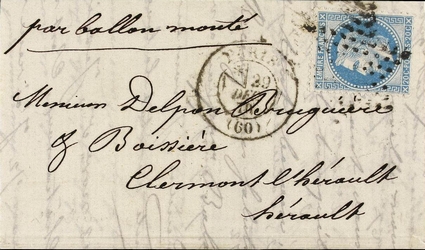 par ballon monté
PARIS
29
(60)
Messieurs Delpon Bruguière
& Boissière
Clermont l'hérault
hérault